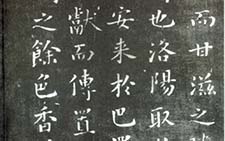 而甘滋之
也洛陽取
安来於巴
獻而傳置
之餘色香